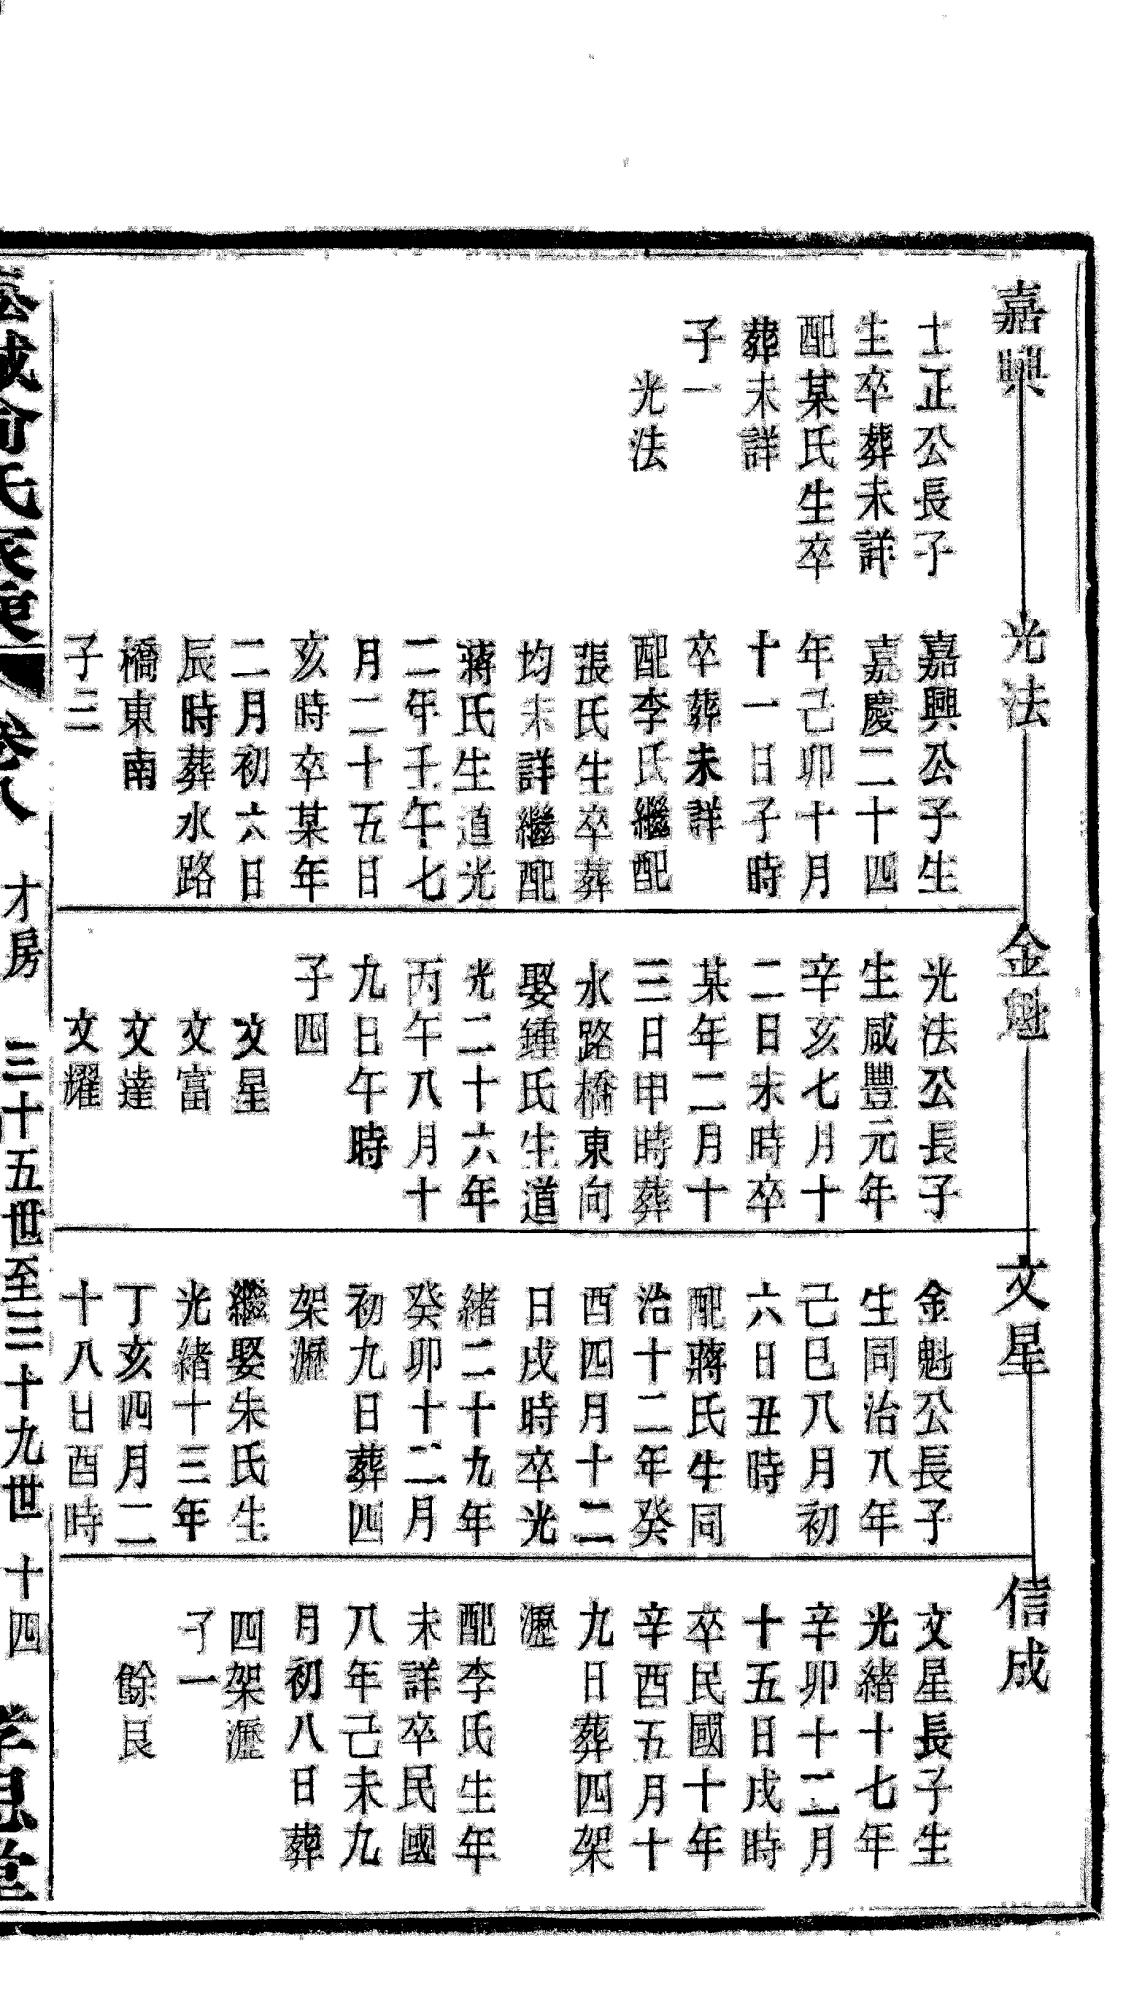 嘉興
士正公長子
生卒葬未詳
配某氏生卒
葬未詳
子一
光法
光法
嘉興公子生
嘉慶二十四
年己卯十月
十一日子時
卒葬未詳
配李氏繼配
張氏生卒葬
均未詳繼配
蔣氏生道光
二年壬午七
月二十五日
亥時卒某年
二月初六日
辰時葬水路
橋東南
子三
金魁
光法公長子
生咸豐元年
辛亥七月十
二日未時卒
某年二月十
三日申時葬
水路橋東向
娶鍾氏生道
光二十六年
丙午八月十
九日午時
子四
文星
文富
文達
文耀
文星
金魁公長子
生同治八年
己巳八月初
六日丑時
配蔣氏生同
治十二年癸
酉四月十二
日戌時卒光
緒二十九年
癸卯十二月
初九日葬四
架瀝
繼娶朱氏生
光緒十三年
丁亥四月二
十八日酉時
信成
文星長子生
光緒十七年
辛卯十二月
十五日戌時
卒民國十年
辛酉五月十
九日葬四架
瀝
配李氏生年
未詳卒民國
八年己未九
月初八日葬
四架瀝
子一
餘良
俞氏家 卷八 才房 三十五世至三十九世 十四 孝思堂